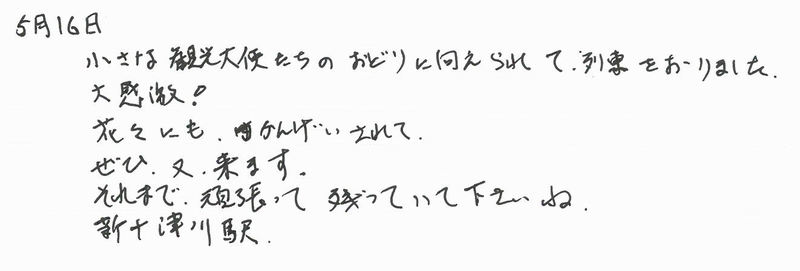 5月16日
小さな観光大使たちのおどりに向えられて.列車をおりました.
大感激!
花々にも.かんげいされて.
ぜひ.又.来ます。
それまで.頑張って残っていて下さいね.
新十津川駅.